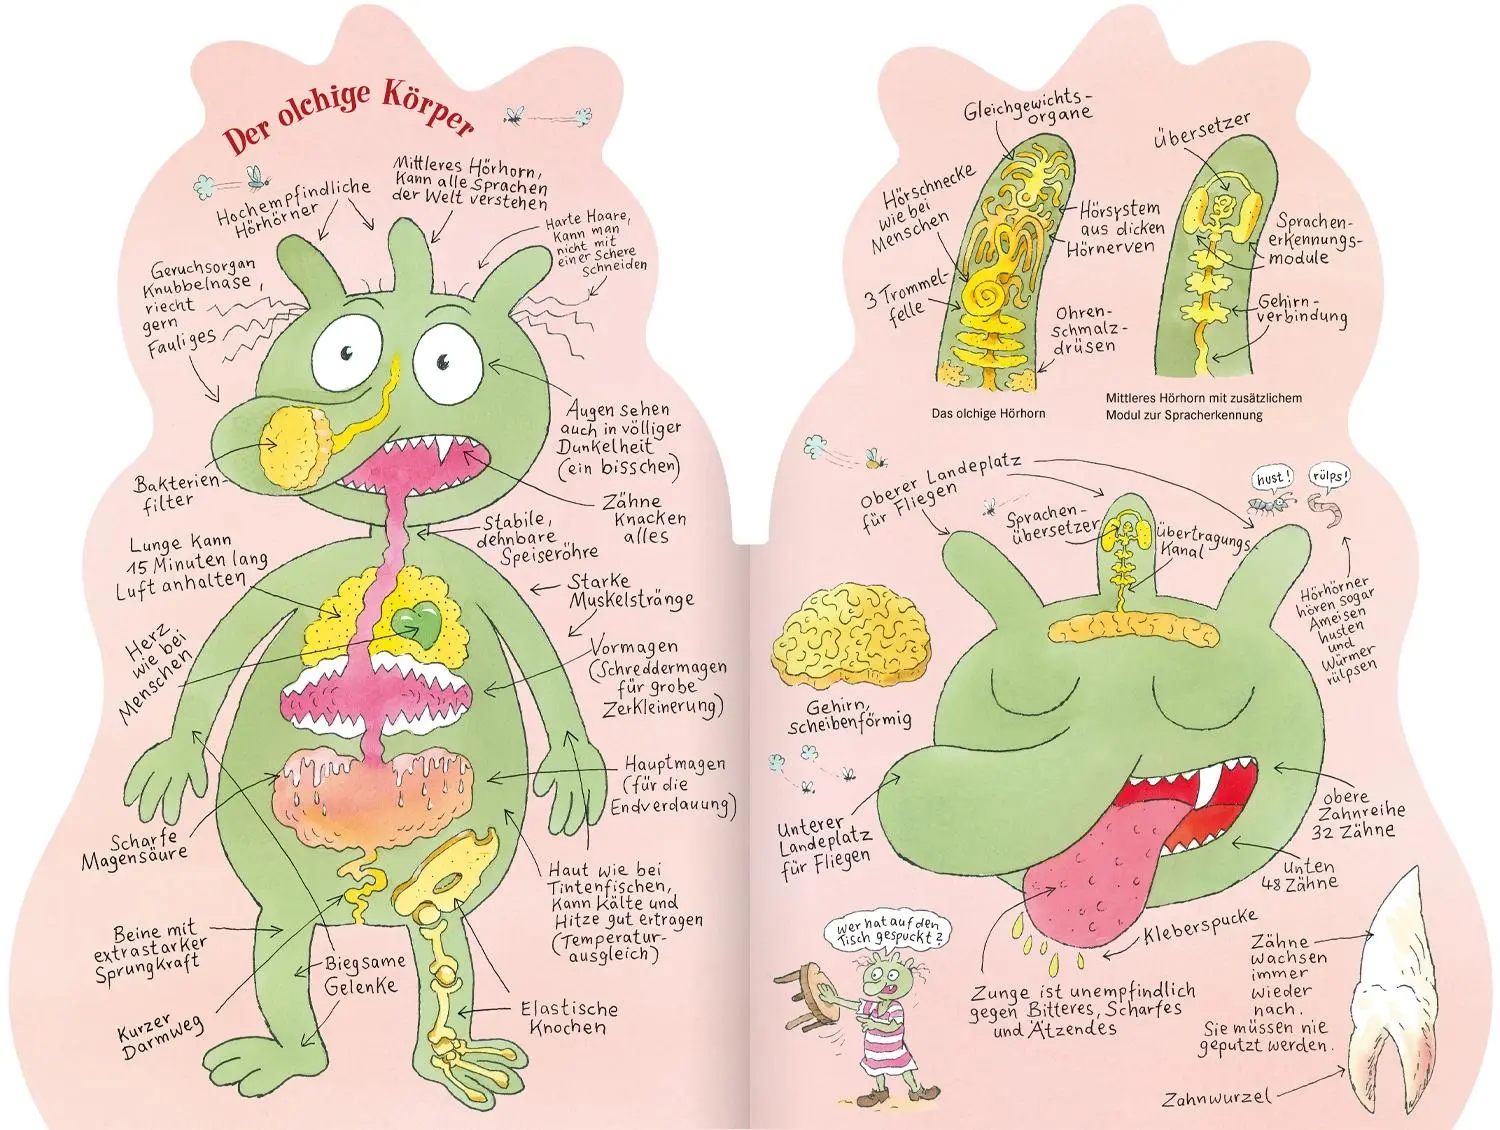 Der olchige Körper
Hochempfindliche
Hörhörner
Mittleres Hörhorn,
Kann alle Sprachen
der Welt verstehen
Harte Haare,
Kann man
nicht mit
einer Schere
Schneiden
Geruchsorgan
Knubbelnase,
riecht
gern
Fauliges
Augen sehen
auch in völliger
Dunkelheit
(ein bisschen)
Bakterien-
filter
Zähne
Knacken
alles
Stabile,
dehnbare
Speiseröhre
Lunge kann
15 Minuten lang
Luft anhalten
Starke
Muskelstränge
Herz
wie bei
Menschen
Vormagen
(Schreddermagen
für grobe
Zerkleinerung)
Hauptmagen
(für die
Endverdauung)
Scharfe
Magensäure
Haut wie bei
Tintenfischen,
Kann Kälte und
Hitze gut ertragen
(Temperatur-
ausgleich)
Beine mit
extrastarker
Sprungkraft
Biegsame
Gelenke
Kurzer
Darmweg
Elastische
Knochen
Gleichgewichts-
organe
Hörschnecke
wie bei
Menschen
Hörsystem
aus dicken
Hörnerven
3 Trommel-
felle
Ohren-
schmalz-
drüsen
Das olchige Hörhorn
Übersetzer
Sprachen-
erkennungs-
module
Gehirn-
verbindung
Mittleres Hörhorn mit zusätzlichem
Modul zur Spracherkennung
Oberer Landeplatz
für Fliegen
Sprachen-
übersetzer
Übertragungs-
Kanal
hust!
rülps!
Hörhörner
hören sogar
Ameisen
husten
und
Würmer
rülpsen
Gehirn,
scheibenförmig
Unterer
Landeplatz
für Fliegen
obere
Zahnreihe
32 Zähne
Unten
48 Zähne
Kleberspucke
Wer hat auf den
Tisch gespuckt?
Zunge ist unempfindlich
gegen Bitteres, Scharfes
und Ätzendes
Zähne
wachsen
immer
wieder
nach.
Sie müssen nie
geputzt werden.
Zahnwurzel